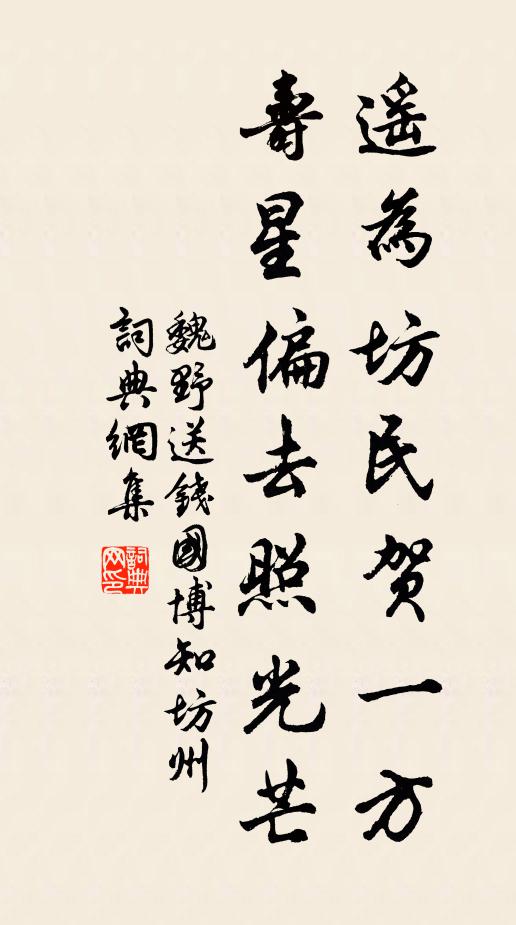 遥為坊民贺一方
壽星偏去照光芒
魏野送錢國博知坊州
詞典網集
詞典網印